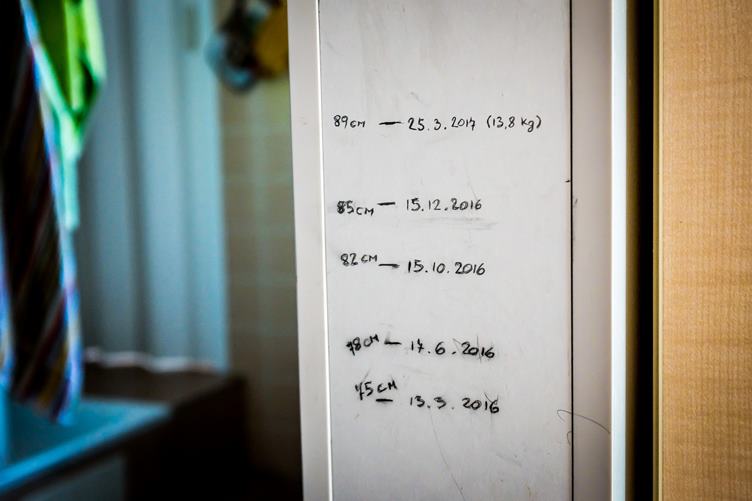 89cm — 25.3.2017 (13,8 kg)
85cm — 15.12.2016
82cm — 15.10.2016
78cm — 17.6.2016
75cm — 13.3.2016